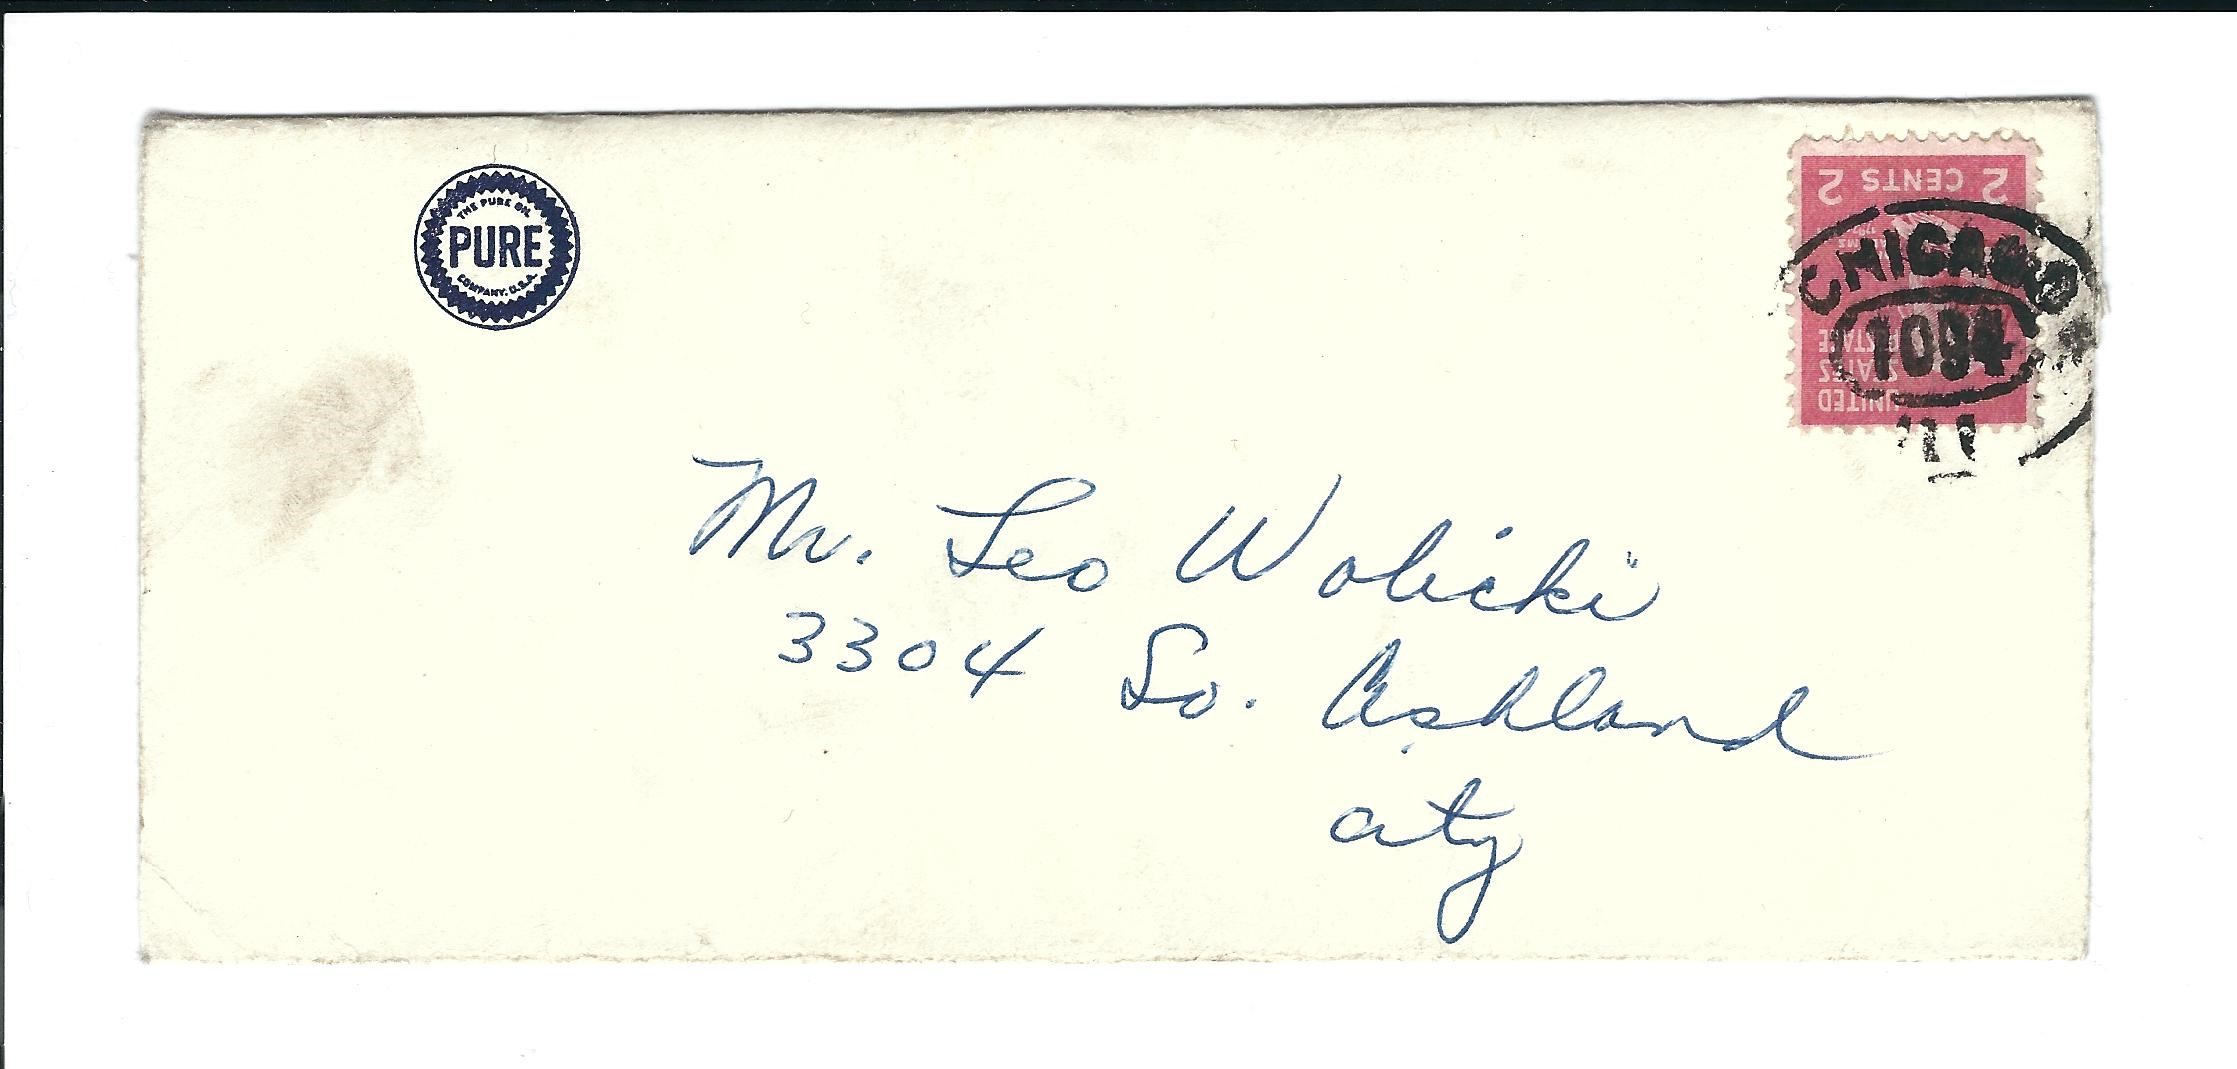 THE PURE OIL
PURE
COMPANY, U.S.A.
2 CENTS 2
UNITED
STATES
POSTAGE
CHICAGO
1094
Mr. Leo Wolicki
3304 So. Ashland
City